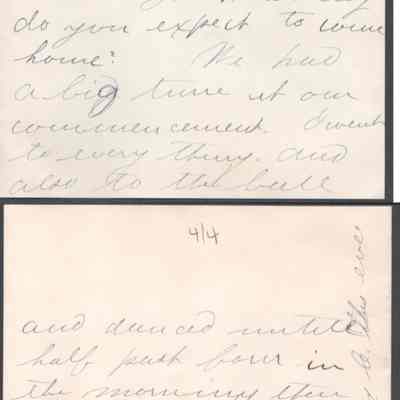 do you expect to come
home? We had
a big time at our
commencement. I went
to every thing. and
also to the ball
4/4
and danced until
half past four in
the morning then
eve